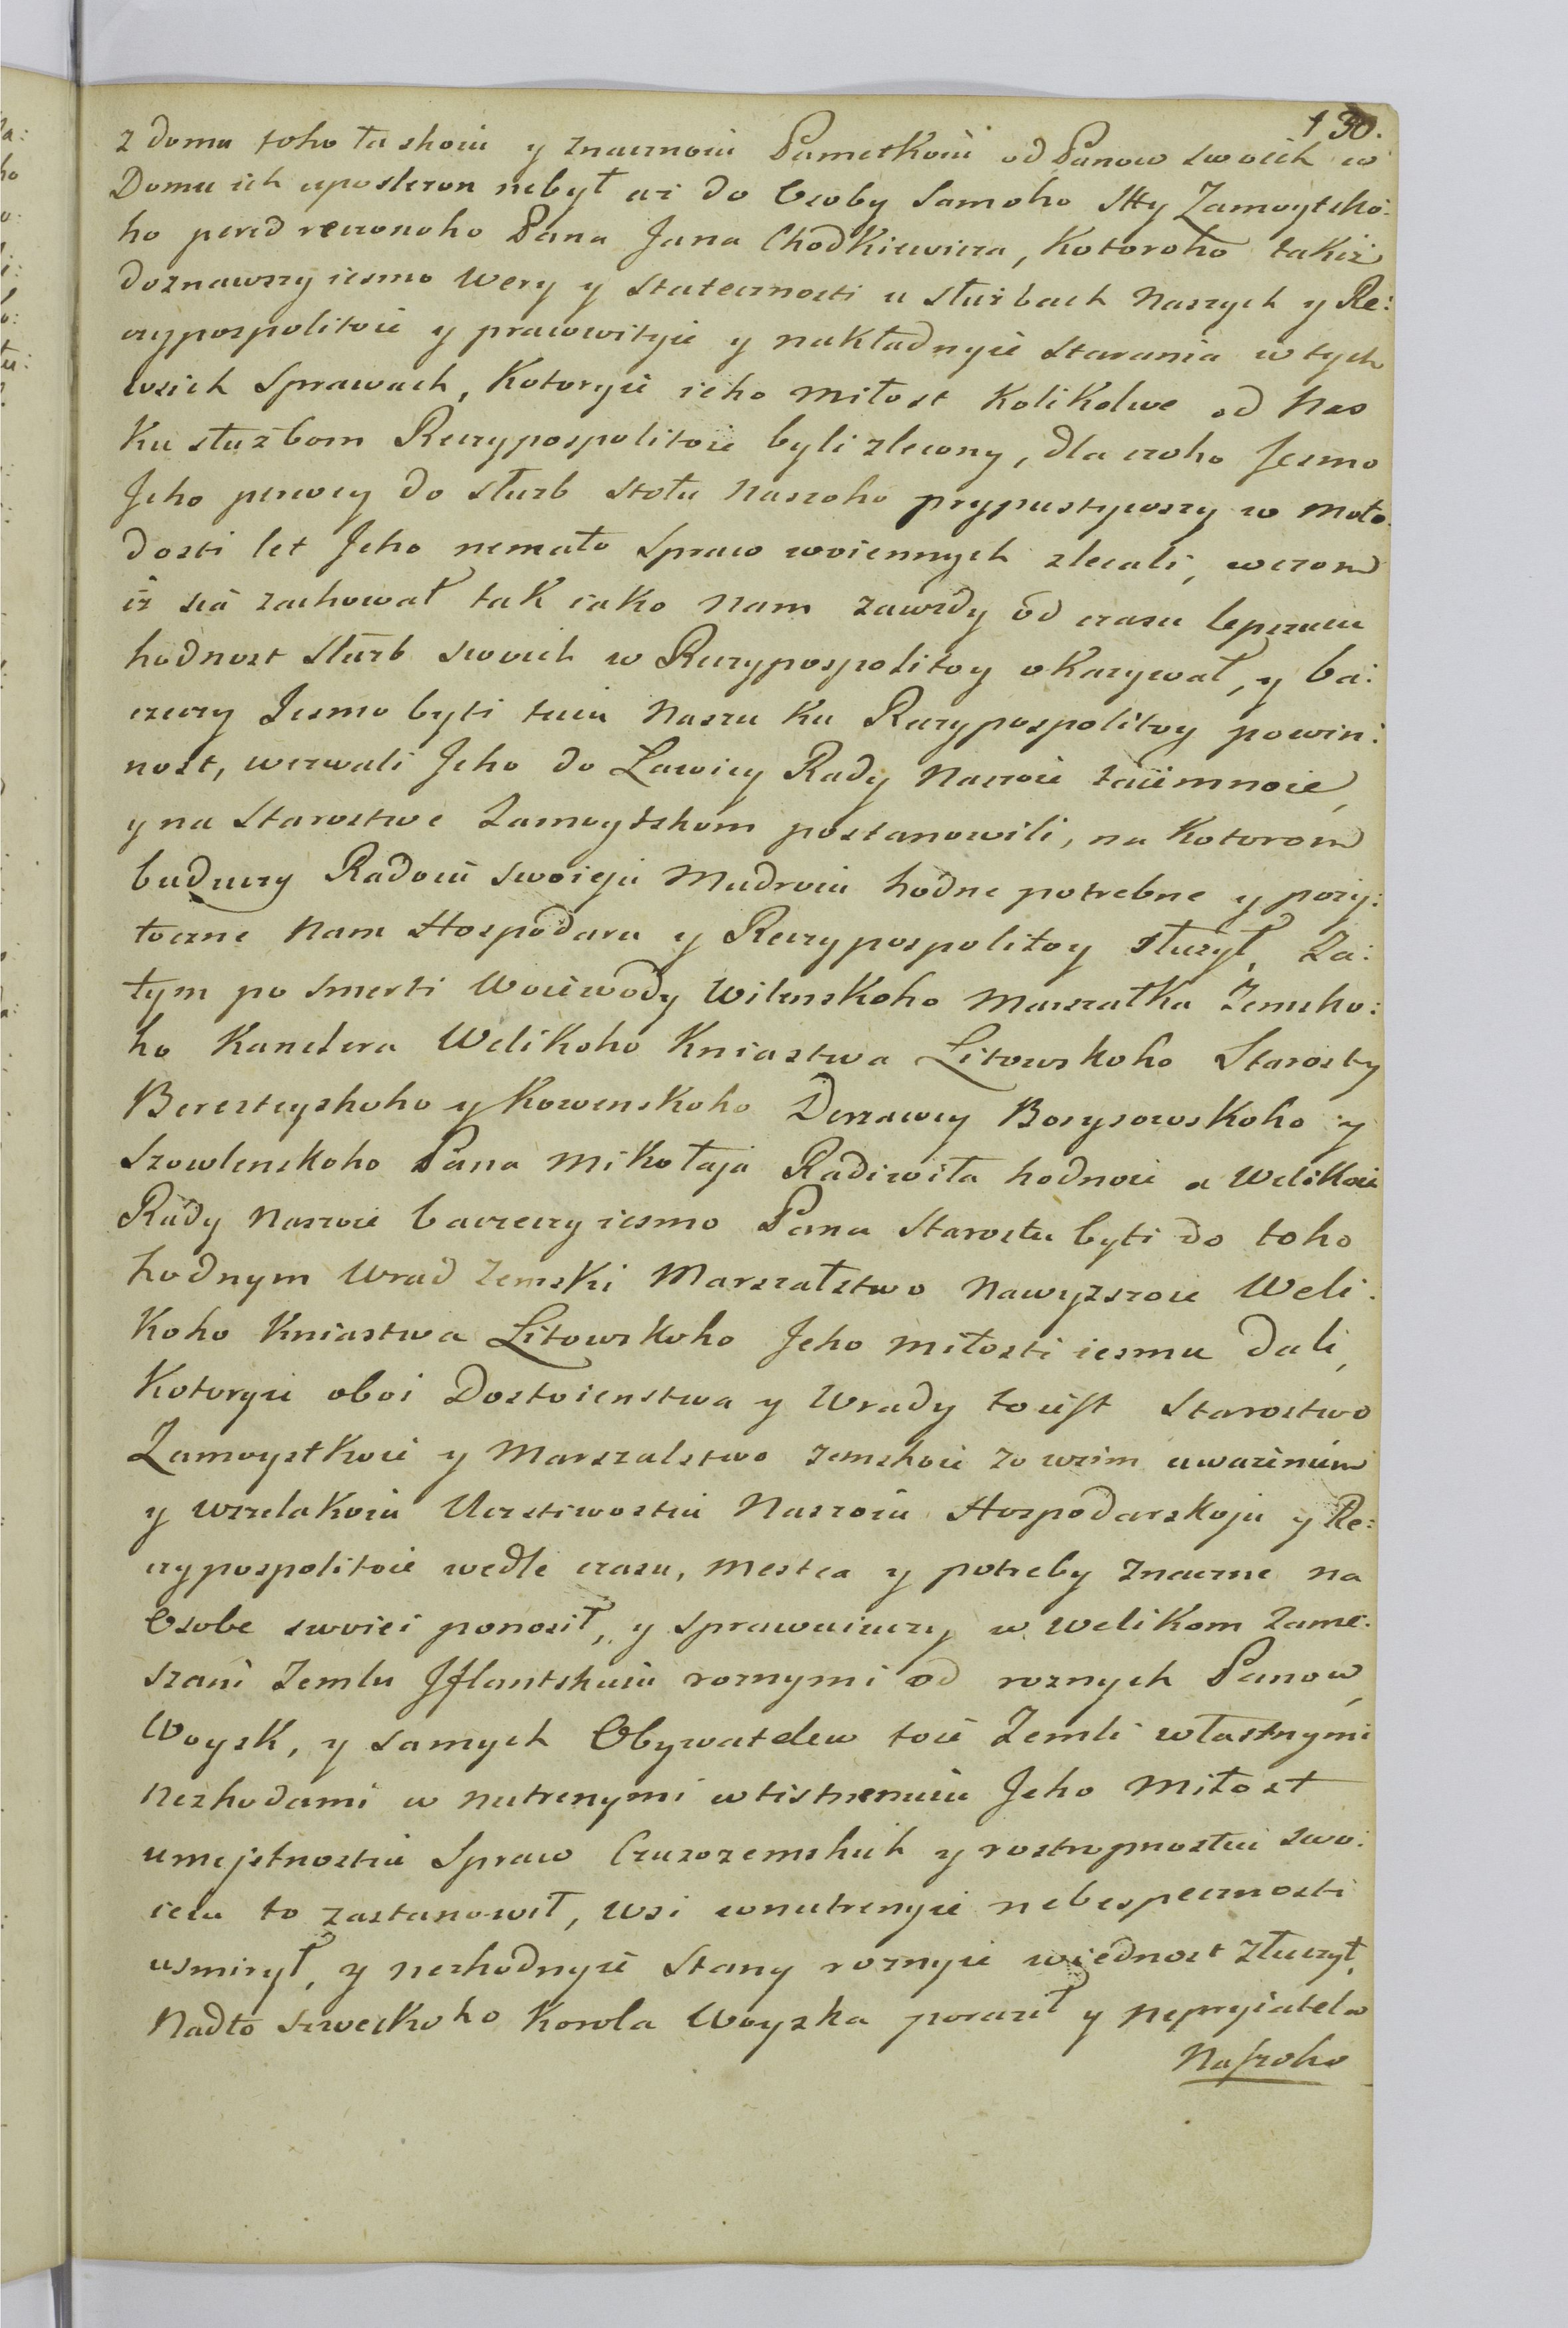 130.
z domu toho łaskoiu y znacznoiu Pametkoiu od Panow swoich w
Domu ich uposleron nebył az do Osoby Samoho Stty Zamoytsko:
ho pered reczonoho Pana Jana Chodkiewicza, Kotoroho takiż
doznawszy iesmo Wery y Statecznosti u służbach Naszych y Re:
czypospolitoie y pracowityie y nakładnyie Starania w tych
wsich Sprawach, Kotoryie ieho Miłost Kolikolwe od Nas
Ku służbom Reczypospolitoie byli zlecony, dla czoho Jesmo
Jeho perwey do słuzb stołu Naszoho prypustywszy w moło:
dosti let Jeho nemało Spraw woiennych zlecali, w czom
iż sia zachował tak iako Nam zawżdy od czasu lepszuiu
hodnost Służb swoich w Reczypospolitoy okazywał, y ba:
czeczy Jesmo byti tuiu Naszu Ku Reczypospolitoy powin:
nost, wezwali Jeho do Ławicy Rady Naszoie taiemnoie,
y na Starostwe Zamoytskom postanowili, na Kotorom
buduczy Radoiu swoieju Mudroiu hodne potrebne y pozy:
toczne Nam Hospodaru y Reczypospolitoy służył, Za:
tym po Smerti Woiewody Wilenskoho Marszałka Zemsko:
ho Kanclera Welikoho Kniastwa Litowskoho Starosty
Beresteyskoho y Kowenskoho Derzawcy Borysowskoho y
Szowlenskoho Pana Mikołaja Radiwiła hodnoie a Welikoie
Rady Naszoie baczeczy iesmo Pana Starostu byti do toho
hodnym Wrad Zemski Marszałstwo Nawyzszoie Weli:
Koho Kniastwa Litowskoho Jeho miłosti iesmu dali,
Kotoryie oboi Dostoienstwa y Wrady toiest Starostwo
Zamoystkoie y Marszalstwo zemskoie zo wsim uważeniem
y wszelakoiu Uczstiwostiu Naszoiu Hospodarskoju y Re:
czypospolitoie wedle czasu, Mestca y potreby znaczne na
Osobe swoiei ponosił, y sprawuiuczy w Welikom Zame:
szani Zemlu Jflantskuiu roznymi od roznych Panow,
Woysk, y samych Obywatelew toie Zemli własnymi
Nezhodami w nutrenymi wtisnenuiu Jeho Miłost
umejetnostiu Spraw Czuzozemskich y rostropnostiu swo:
ieiu to zastanowił, Wsi wnutrenyie nebespecznosti
usmirył, y nezhodnyie Stany roznyie w iednost złuczył,
Nadto szweckoho Korola Woyska poraził y nepryiatela
Naszoho